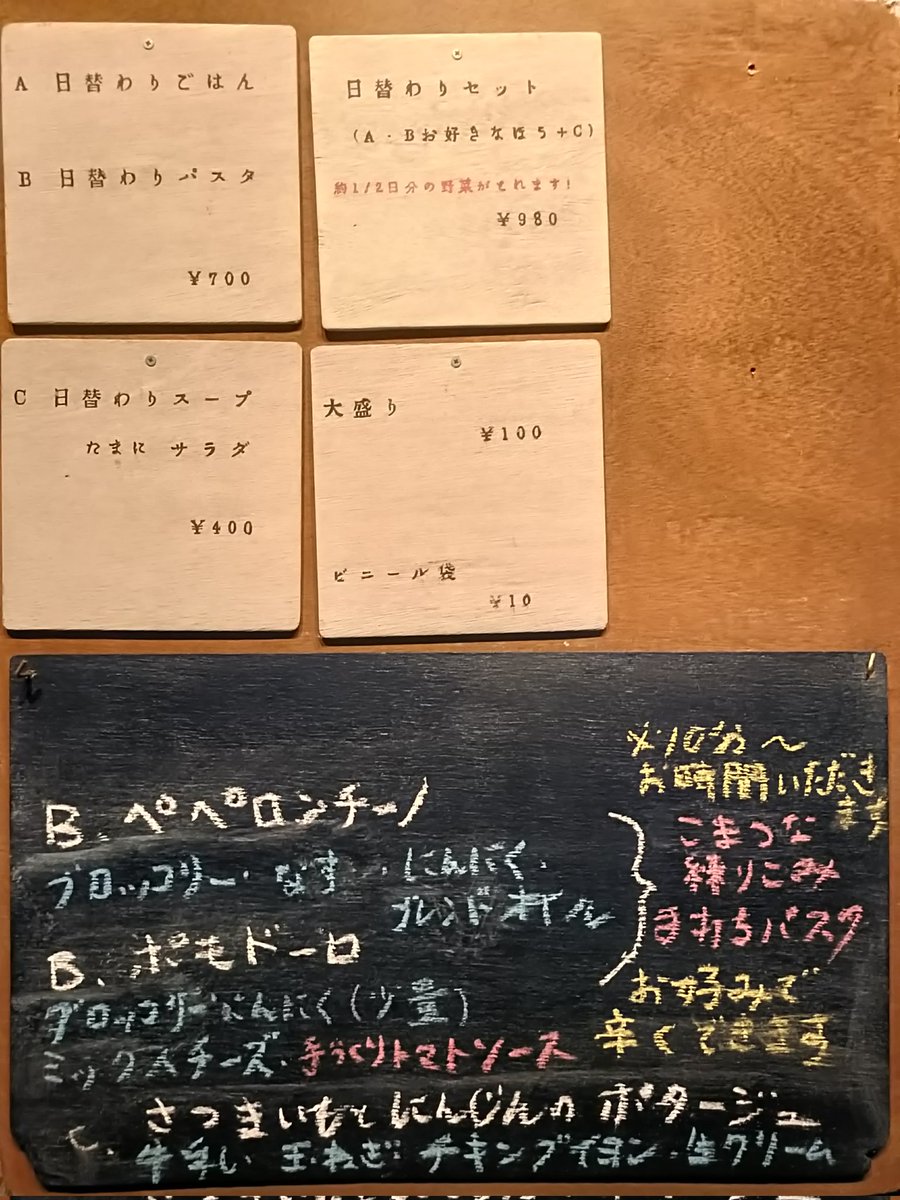 A 日替わりごはん
B 日替わりパスタ
¥700
日替わりセット
(A・Bお好きなほう+C)
約1/2日分の野菜がとれます!
¥980
C 日替わりスープ
たまに サラダ
¥400
大盛り
¥100
ビニール袋
¥10
※10分〜
お時間いただき
ます
B. ペペロンチーノ
ブロッコリー・なす・にんにく・
ブレンドオイル
こまつな
練りこみ
手打ちパスタ
B. ポモドーロ
ブロッコリー・にんにく(少量)
ミックスチーズ・手づくりトマトソース
お好みで
辛くできます
C. さつまいもとにんじんのポタージュ
牛乳・玉ねぎ・チキンブイヨン・生クリーム